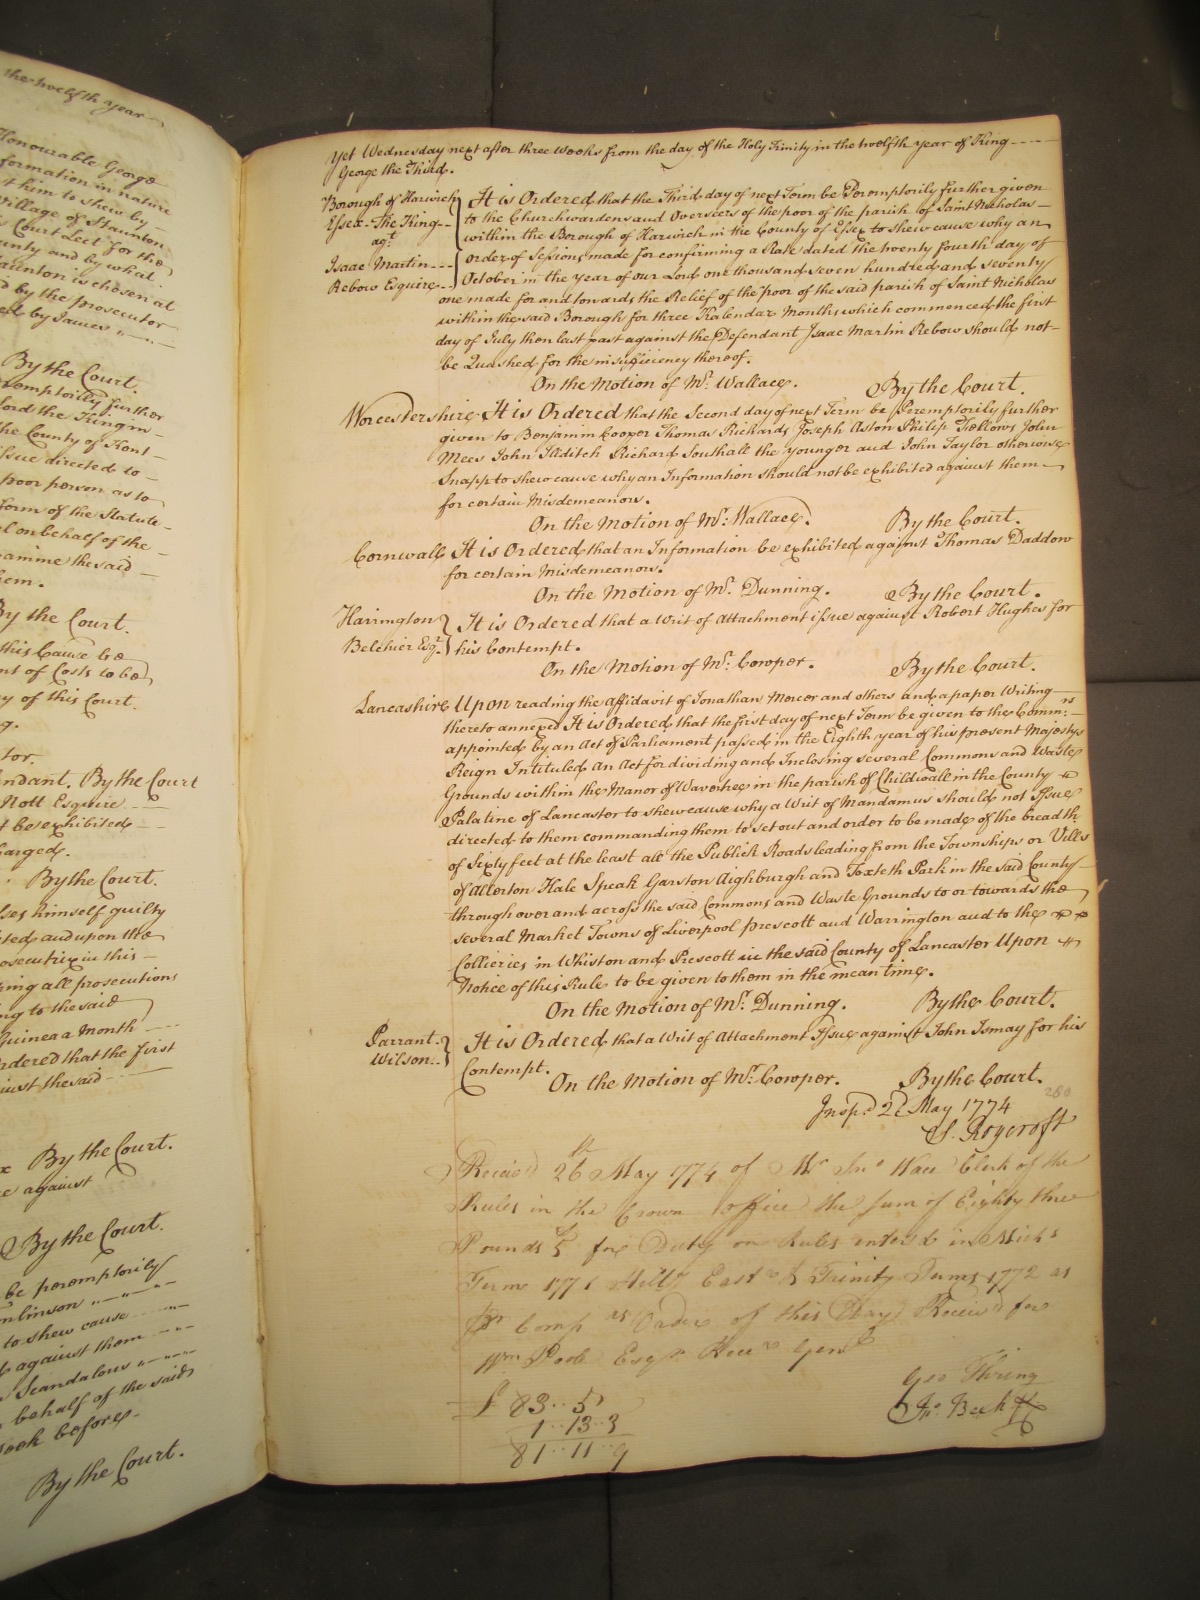 the twelfth year
Honourable George
formation in nature
t him to shew by
Village of Staunton
s Court Leet for the
unty and by what
taunton is chosen at
d by the prosecutor
ed by James
By the Court.
eremptorily further
ord the King in
he County of Kent
ssue directed to
poor person as to
form of the Statute
l on behalf of the
amine the said
hem.
By the Court.
this Cause be
nt of Costs to be
y of this Court.
g.
tor.
endant. By the Court
Nott Esquire
t be exhibited
harged.
By the Court.
ses himself guilty
ted and upon the
osecutrix in this
ring all prosecutions
ng to the said
Guinea a Month
rdered that the first
inst the said
By the Court.
e against
By the Court.
be peremptorily
mlinson
to shew cause
d against them
Scandalous
behalf of the said
ook before
By the Court.
Yet Wednesday next after three Weeks from the day of the Holy Trinity in the twelfth year of King
George the Third.
Borough of Harwich It is Ordered that the Third day of next Term be Peremptorily further given
Essex - The King to the Churchwardens and Overseers of the poor of the parish of Saint Nicholas
agt. within the Borough of Harwich in the County of Essex to shew cause why an
Isaac Martin order of Sessions made for confirming a Rate dated the twenty fourth day of
Rebow Esquire October in the year of our Lord one thousand seven hundred and seventy
one made for and towards the Relief of the poor of the said parish of Saint Nicholas
within the said Borough for three Kalendar Months which commenced the first
day of July then last past against the Defendant Isaac Martin Rebow should not
be Quashed for the insufficiency thereof.
On the Motion of Mr. Wallace. By the Court.
Worcestershire It is Ordered that the Second day of next Term be Peremptorily further
given to Benjamin Cooper Thomas Richards Joseph Aston Philip Fellows John
Mees John Ilditch Richard Southall the younger and John Taylor otherwise
Snapp to shew cause why an Information should not be exhibited against them
for certain Misdemeanors.
On the Motion of Mr. Wallace. By the Court.
Cornwall It is Ordered that an Information be exhibited against Thomas Daddow
for certain Misdemeanors.
On the Motion of Mr. Dunning. By the Court.
Harrington It is Ordered that a Writ of Attachment issue against Robert Hughes for
Belchier Esqr. his Contempt.
On the Motion of Mr. Cowper. By the Court.
Lancashire Upon reading the affidavit of Jonathan Mercer and others and a paper Writing
thereto annexed It is Ordered that the first day of next Term be given to the Commrs.
appointed by an Act of Parliament passed in the Eighth year of his present Majestys
Reign Intituled An Act for dividing and Inclosing several Commons and Waste
Grounds within the Manor of Wavertree in the parish of Childwall in the County
Palatine of Lancaster to shew cause why a Writ of Mandamus should not Issue
directed to them commanding them to set out and order to be made of the breadth
of Sixty feet at the least all the Publick Roads leading from the Townships or Vills
of Allerton Hale Speak Garston Aighburgh and Toxteth Park in the said County
through over and across the said Commons and Waste Grounds to or towards the
several Market Towns of Liverpool Prescott and Warrington and to the
Collieries in Whiston and Prescott in the said County of Lancaster Upon
Notice of this Rule to be given to them in the mean time.
On the Motion of Mr. Dunning. By the Court.
Parrant It is Ordered that a Writ of Attachment Issue against John Ismay for his
Wilson Contempt.
On the Motion of Mr. Cowper. By the Court.
280
Insp.d 2d May 1774
S. Roycroft
Receiv'd 26th May 1774 of Mr Jno Wace Clerk of the
Rules in the Crown Office the sum of Eighty three
Pounds 5s for Duty on Rules enter'd in Michs
Term 1771 Hilly Eastr & Trinity Terms 1772 as
Comp as Order of this Day Receiv'd for
Wm Poole Esqr Recr Genl
Geo Thring
£ 83 .. 5
Jno. Beck
1 .. 13 .. 3
81 .. 11 .. 9